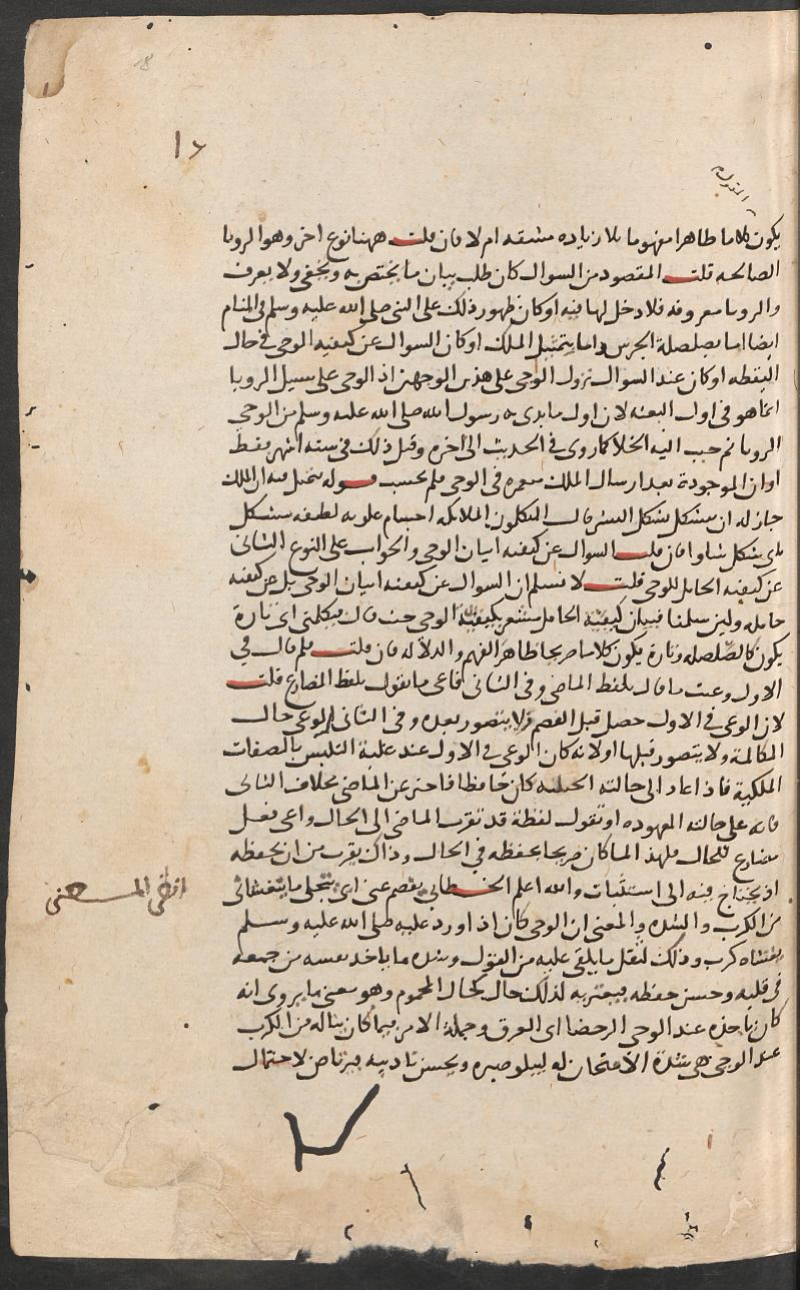 18
١٦
يكون كلاما ظاهرا مفهوما بلا زياده مشقه ام لا فان قلت ههنا نوع اخر وهو الرويا
الصالحه قلت المقصود من السوال كان طلب بيان ما يختص به ويخفى ولا يعرف
والرويا معروفه فلا دخل لها فيه او كان ظهور ذلك على النبي صلى الله عليه وسلم في المنام
ايضا اما بصلصلة الجرس واما بتمثيل الملك او كان السوال عن كيفيه الوحي في حال
اليقظه او كان عند السوال نزول الوحي على هذين الوجهين اذ الوحي على سبيل الرويا
انما هو في اول البعثه لان اول ما بدى به رسول الله صلى الله عليه وسلم من الوحي
الرويا ثم حبب اليه الخلا كما روى في الحديث الى اخره وقيل ذلك في سته اشهر فقط
او ان الموجودة بعد ارسال الملك منغمره في الوحي فلم يحسب قوله يتمثل فيه ان الملك
جاز له ان يتشكل بشكل البشر قال المتكلمون الملايكه اجسام علويه لطيفه تتشكل
باى شكل شاوا فان قلت السوال عن كيفيه اتيان الوحي والجواب على النوع الثاني
عن كيفيه الحامل للوحي قلت لا نسلم ان السوال عن كيفيه اتيان الوحي بل عن كيفيه
حامله ولين سلمنا فبيان كيفيّة الحامل مشعر بكيفيّة الوحي حيث قال فيكلمني اى تارة
يكون كالصّلصله وتارة يكون كلاما صريحا ظاهر الفهم والدلاله فان قلت فلم قال في
الاول وعيت ما قال بلفظ الماضي وفي الثاني فاعى ما يقول بلفظ المضارع قلت
لان الوعي في الاول حصل قبل الفصم ولا يتصور بعده وفي الثاني الوعي حال
المكالمة ولا يتصور قبلها او لانه كان الوعي في الاول عند غلبة التلبس بالصفات
الملكية فاذا عاد الى حالته الجبليه كان حافظا فاخبر عن الماضي بخلاف الثاني
فانه على حالته المعهوده او نقول لفظة قد تقرب الماضي الى الحال واعى فعل
مضارع للحال فلهذا لما كان صريحا يحفظه في الحال وذاك يقرب من ان يحفظه
اذ يحتاج فيه الى استثبات والله اعلم الخطابي يفصم عنى اى ينجلى ما يتغشانى
من الكرب والشده والمعنى ان الوحي كان اذا ورد عليه صلى الله عليه وسلم
يتغشاه كرب وذلك لثقل ما يلقى عليه من القول وشده ما ياخذ نفسه من جمعه
في قلبه وحسن حفظه فيعتريه لذلك حال كحال المحموم وهو معنى ما يروى انه
كان ياخذه عند الوحي الرحضا اى العرق وجملة الامر فيما كان يناله من الكرب
عند الوحي هي شدة الامتحان له ليبلو صبره ويحسن تاديبه فيرتاض لاحتمال